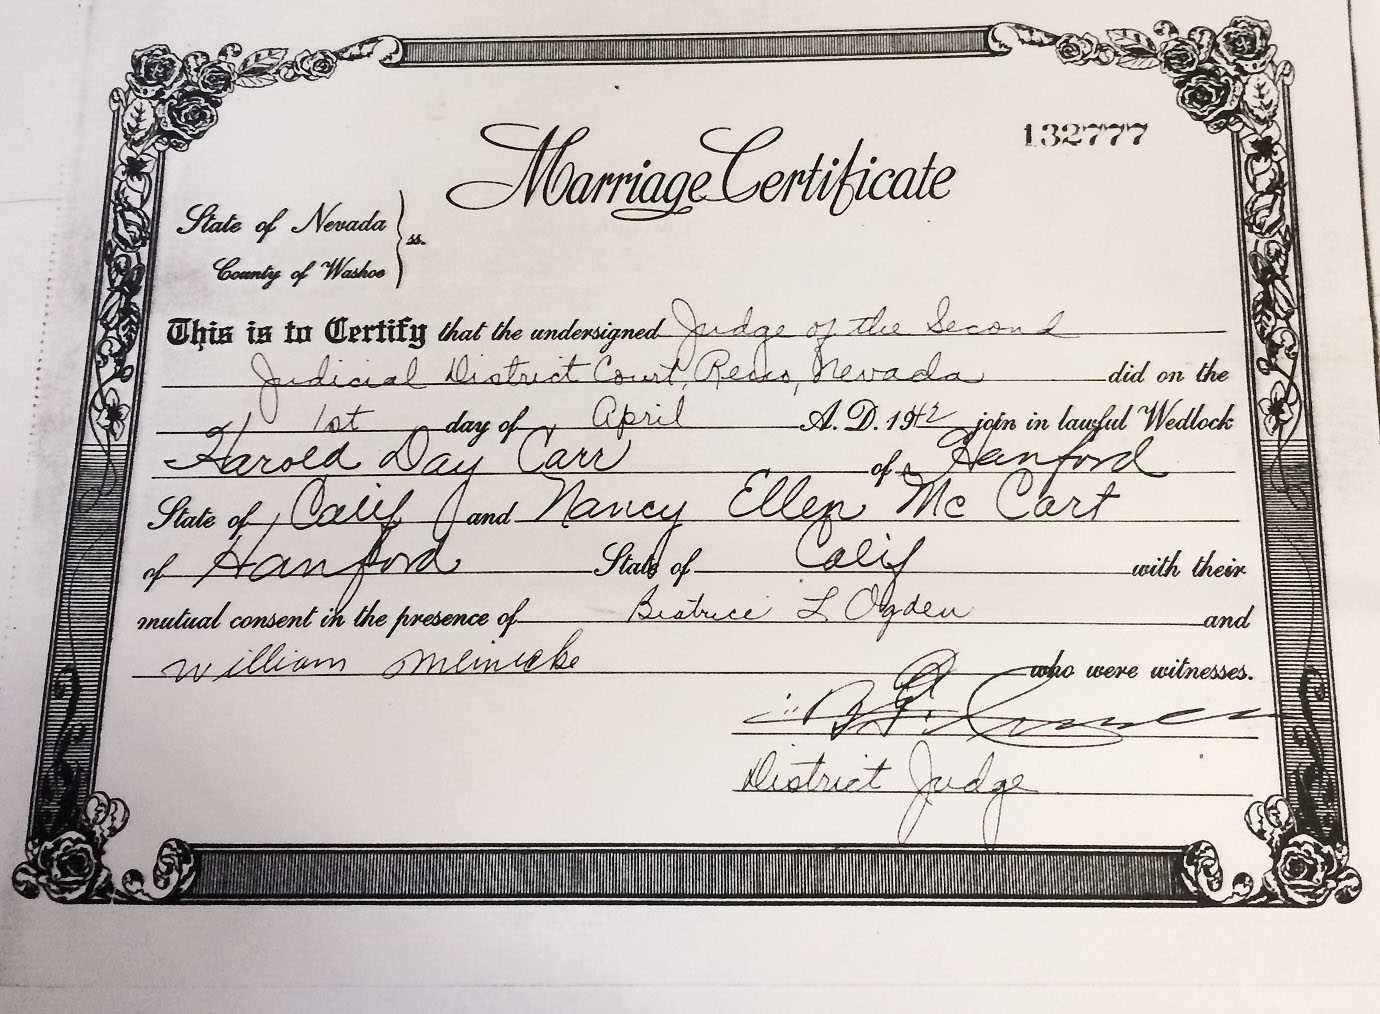 132777
Marriage Certificate
State of Nevada
ss.
County of Washoe
This is to Certify that the undersigned Judge of the Second
Judicial District Court, Reno, Nevada did on the
1st day of April A. D. 1942 join in lawful Wedlock
Harold Day Carr of Hanford
State of Calif and Nancy Ellen Mc Cart
of Hanford State of Calif with their
mutual consent in the presence of Beatrice L Ogden and
William Meinicke who were witnesses.
District Judge